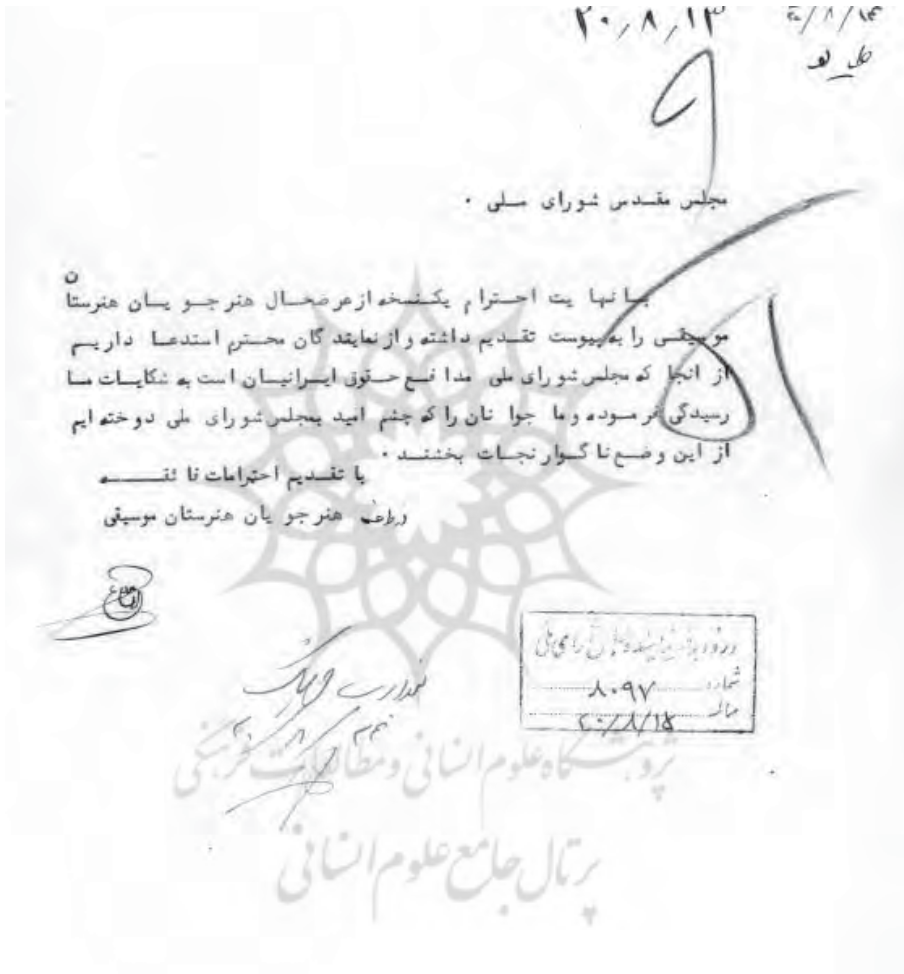 ۲۰٫۸٫۱۳
۲۰/۸/۱۴
مجلس مقدس شورای ملی ۰
با نهایت احترام یکنسخه از عرضحال هنرجویان هنرستان
موسیقی را به پیوست تقدیم داشته و از نمایندگان محترم استدعا داریم
از انجا که مجلس شورای ملی مدافع حقوق ایرانیان است به شکایات ما
رسیدگی فرموده و ما جوانان را که چشم امید بمجلس شورای ملی دوخته ایم
از این وضع ناگوار نجات بخشند ۰
با تقدیم احترامات فائقه
از طرف هنرجویان هنرستان موسیقی
شماره ۸۰۹۷
۲۰/۸/۱۵
۲۰/۸/۲۴
پژوهشگاه علوم انسانی و مطالعات فرهنگی
پرتال جامع علوم انسانی